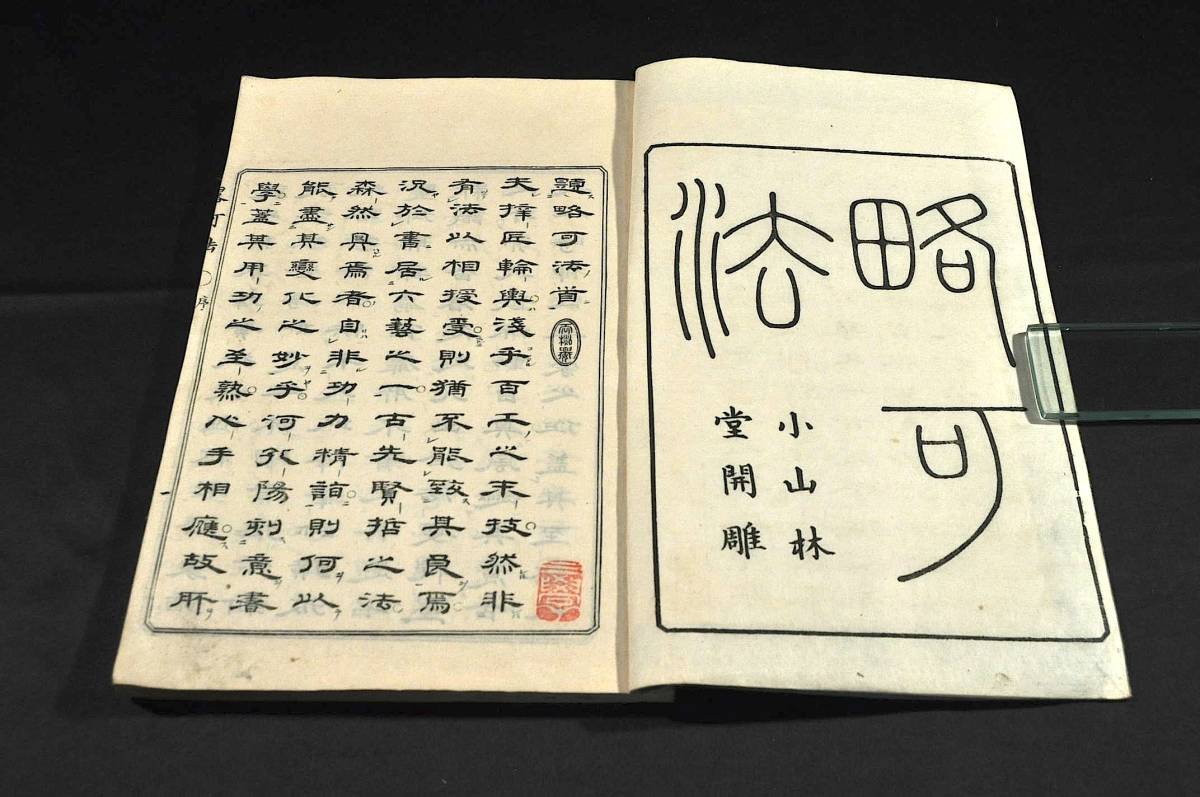 略可
法
小山林
堂開雕
題略可法首
夫梓匠輪輿淺乎百工之末技然非
有法以相授受則猶不能致其良焉
況於書居六藝之一古先賢哲之法
森然具焉者自非功力精詣則何以
能盡其變化之妙乎河孔陽刻意書
學蓋其用功之至熟心手相應故肝
略可法 〇序
一